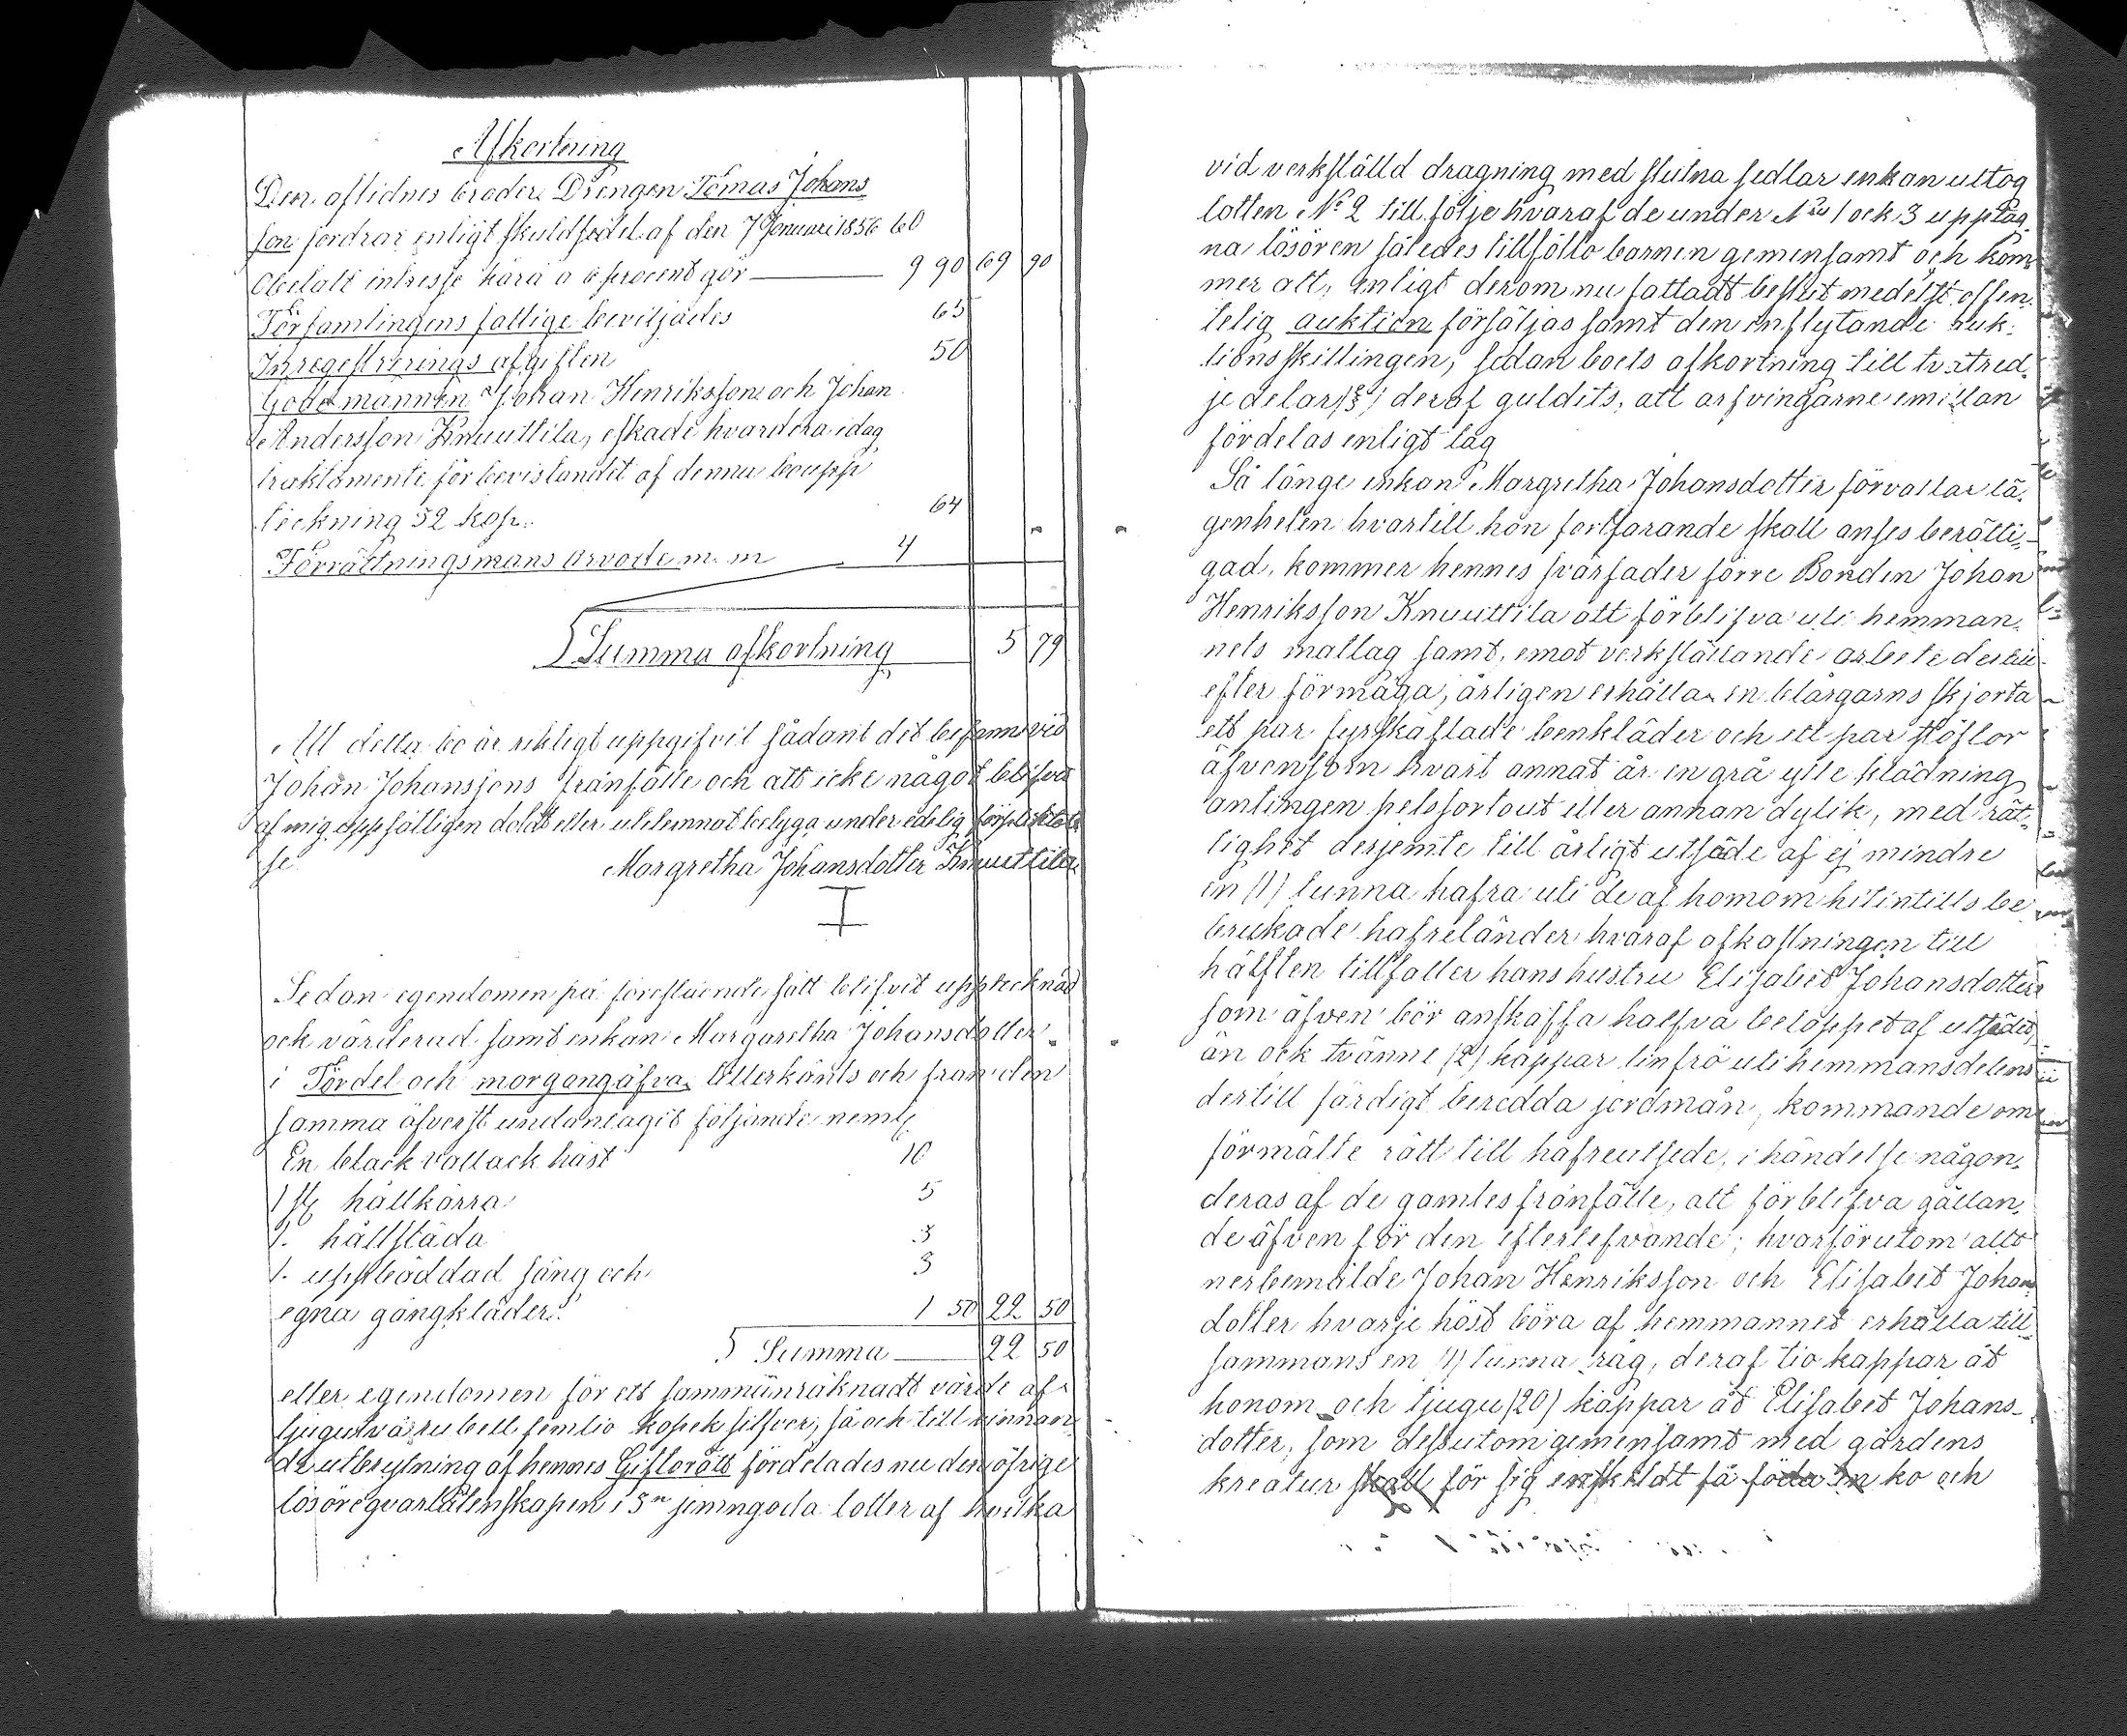 Afkortning
Den aflidnes broder Drengen Tomas Johans
son fordrar enligt skuldsedel af den 7 Januari 1856 60
Obetalt intresse härå a 6 procent gör 9 90 69 90
Församlingens fattige beviljades 65
Inregistrerings afgiften 50
Gode männen Johan Henriksson och Johan
Andersson Knuuttila, eskade hvardera i dag
traktamente för bevistandet af denna boupp
teckning 32 kop. 64
Förrättningsmans arvode m. m 4
Summa afkortning 5 79
All detta bo är riktigt uppgifvit sådant det befanns vid
Johan Johanssons frånfälle och att icke något blifvit
af mig uppsåtligen doldt eller utelemnat betygar under edelig förpliktel
se Margretha Johansdotter Knuuttila
Sedan egendomen på föreslående sätt blifvit upptecknad
och värderad samt enkan Margaretha Johansdotter
i Fördel och morgongåfva tillerkänts och från den
samma äfverst undantagit följande neml
En black vallack häst 10
1 st hållkärra 5
1. hållsläda 3
1. uppbäddad säng och 3
egna gångkläder 1 50 22 50
Summa 22 50
eller egendomen för ett sammanräknadt värde af
tjugutvå rubell femtio kopek silfver, så och till vinnan
de utbrytning af hennes Giftorätt fördelades nu den öfrige
lösöre qvarlåtenskapen i 3ne jemngoda lotter af hvilka
vid verkställd dragning med slutna sedlar enkan uttog
lotten No 2 till följe hvaraf de under No 1 ock 3 upptag
na lösören således tillföllo barnen gemensamt och kom
mer att, enligt derom nu fattadt beslut medelst offen
telig auktion försäljas samt den inflytande auk
tionsskillingen, sedan boets afkortning till tvåtred
jedelar deraf guldits, att arfvingarne emellan
fördelas enligt lag
Så länge enkan Margretha Johansdotter förvaltar lä
genheten hvartill hon fortfarande skall anses berätti
gad, kommer hennes svärfader förre Bonden Johan
Henriksson Knuuttila att förblifva uti hemman
nets matlag samt, emot verkställande arbete derut
efter förmåga, årligen erhålla en blårgarns skjorta
ett par fyrskaftade benkläder och ett par stöflor
äfvensom hvart annat år en grå ylle klädning
antingen pelssortout eller annan dylik, med rät
tighet derjemte till årligt utsäde af ej mindre
en (1) tunna hafra uti de af honom hitintills be
brukade hafreländer hvaraf afkastningen till
hälften tillfaller hans hustru Elisabet Johansdotter
som äfven bör anskaffa halfva beloppet af utsädet,
än ock tvänne (2) kappar linfrö uti hemmansdelens
dertill färdigt beredda jordmån, kommande om
förmälte rätt till hafreutsede, i händelse någon
deras af de gamles frånfälle, att förblifva gällan
de äfven för den efterlefvande; hvarförutom allt
nerbemälde Johan Henriksson och Elisabet Johans
dotter hvarje höst böra af hemmannet erhålla till
sammans en (1) tunna råg, deraf tio kappar åt
honom och tjugu (20) kappar åt Elisabet Johans
dotter, som dessutom gemensamt med gårdens
kreatur skall för sig enskildt få föda en ko och